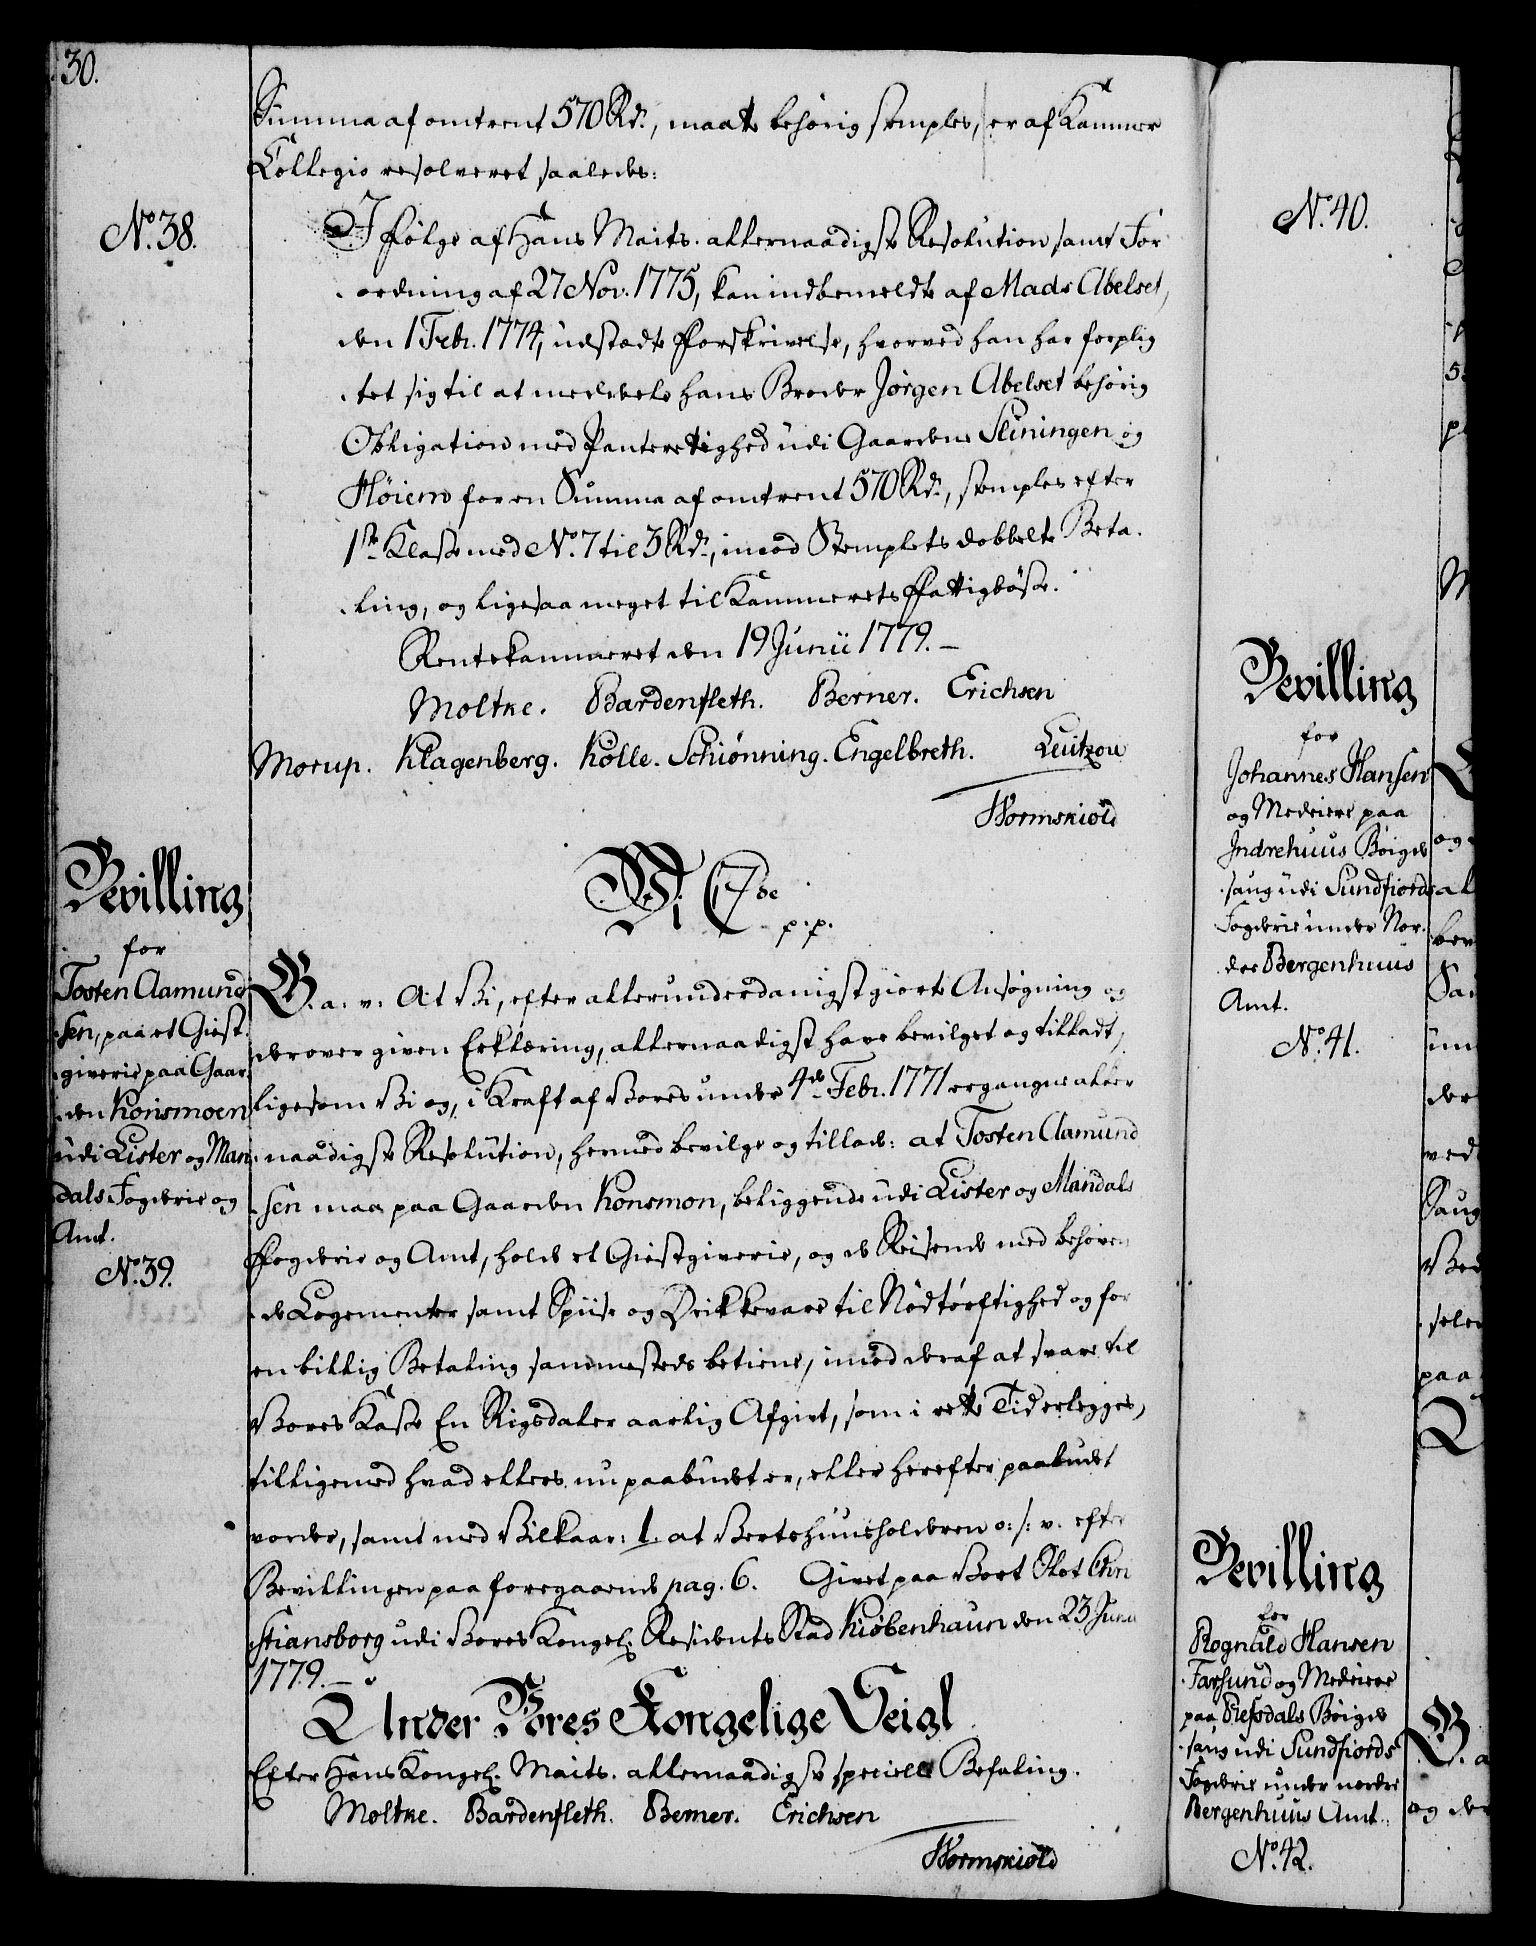 30.
Summa af omtrent 570 Rd., maatte behørig stemples, er af Kammer
Collegio resolveret saaledes:
No. 38.
I følge af Hans Maits. allernaadigste Resolution samt For
ordning af 27 Nov. 1775, kan indbemeldte af Mads Abelset,
den 1 Febr. 1774, udstædte Forskrivelse, hvorved han har forplig
tet sig til at meddeele hans Broder Jørgen Abelset behørig
Obligation med Panterettighed udi Gaardene Sliningen og
Høiem for en Summa af omtrent 570 Rd., stemples efter
1ste Klasse med No. 7 til 3 Rd., imod Stemplets dobbelte Beta
ling, og ligesaa meget til Kammerets Fattigbøsse.
Rentekammeret den 19 Junii 1779. —
Moltke. Bardenfleth. Berner. Erichsen
Morup. Klagenberg. Kølle. Schiønning. Engelbreth. Lützou
Wormskiold
Vi C 7de
p. p.
Bevilling
for
Tosten Aamund
sen, paa et Giest
giverie paa Gaar
den Konsmoen
udi Lister og Man
dals Fogderie og
Amt.
No. 39.
G. a. v: At Vi, efter allerunderdanigst giorte Ansøgning og
derover given Erklæring, allernaadigst have bevilget og tilladt,
ligesom Vi og, i Kraft af Vores under 4de Febr. 1771 ergangne aller
naadigste Resolution, hermed bevilge og tillade: at Tosten Aamund
sen maa paa Gaarden Konsmon, beliggende udi Lister og Mandals
Fogderie og Amt, holde et Giestgiverie, og de Reisende med behøven
de Logementer samt Spiise og Drikkevare til Nødtørftighed og for
en billig Betaling sammesteds betiene, imod deraf at svare til
Vores Kasse Een Rigsdaler aarlig Afgivt, som i rette Tid erlegges,
tilligemed hvad ellers nu paabudet er, eller herefter paabudet
vorder, samt med Vilkaar: 1. at Vertshuusholderen o: s: v. efter
Bevillingen paa foregaaende pag. 6. Givet paa Vort Slot Chri
stiansborg udi Vores Kongel. Residents Stad Kiøbenhaun den 23 Junii
1779. —
Under Vores Kongelige Seigl
Efter Hans Kongel. Maits. allernaadigste specielle Befaling.
Moltke. Bardenfleth. Berner. Erichsen
Wormskiold
No. 40.
Bevilling
for
Johannes Hansen
og Medeiere paa
Indrehuus Bøigde
saug udi Sundfiords
Fogderie under Nor
dre Bergenhuus
Amt.
No. 41.
Bevilling
for
Rognald Hansen
Farsund og Medeiere
paa Refsdals Bøigde
saug udi Sundfiords
Fogderie under nordre
Bergenhuus Amt.
No. 42.